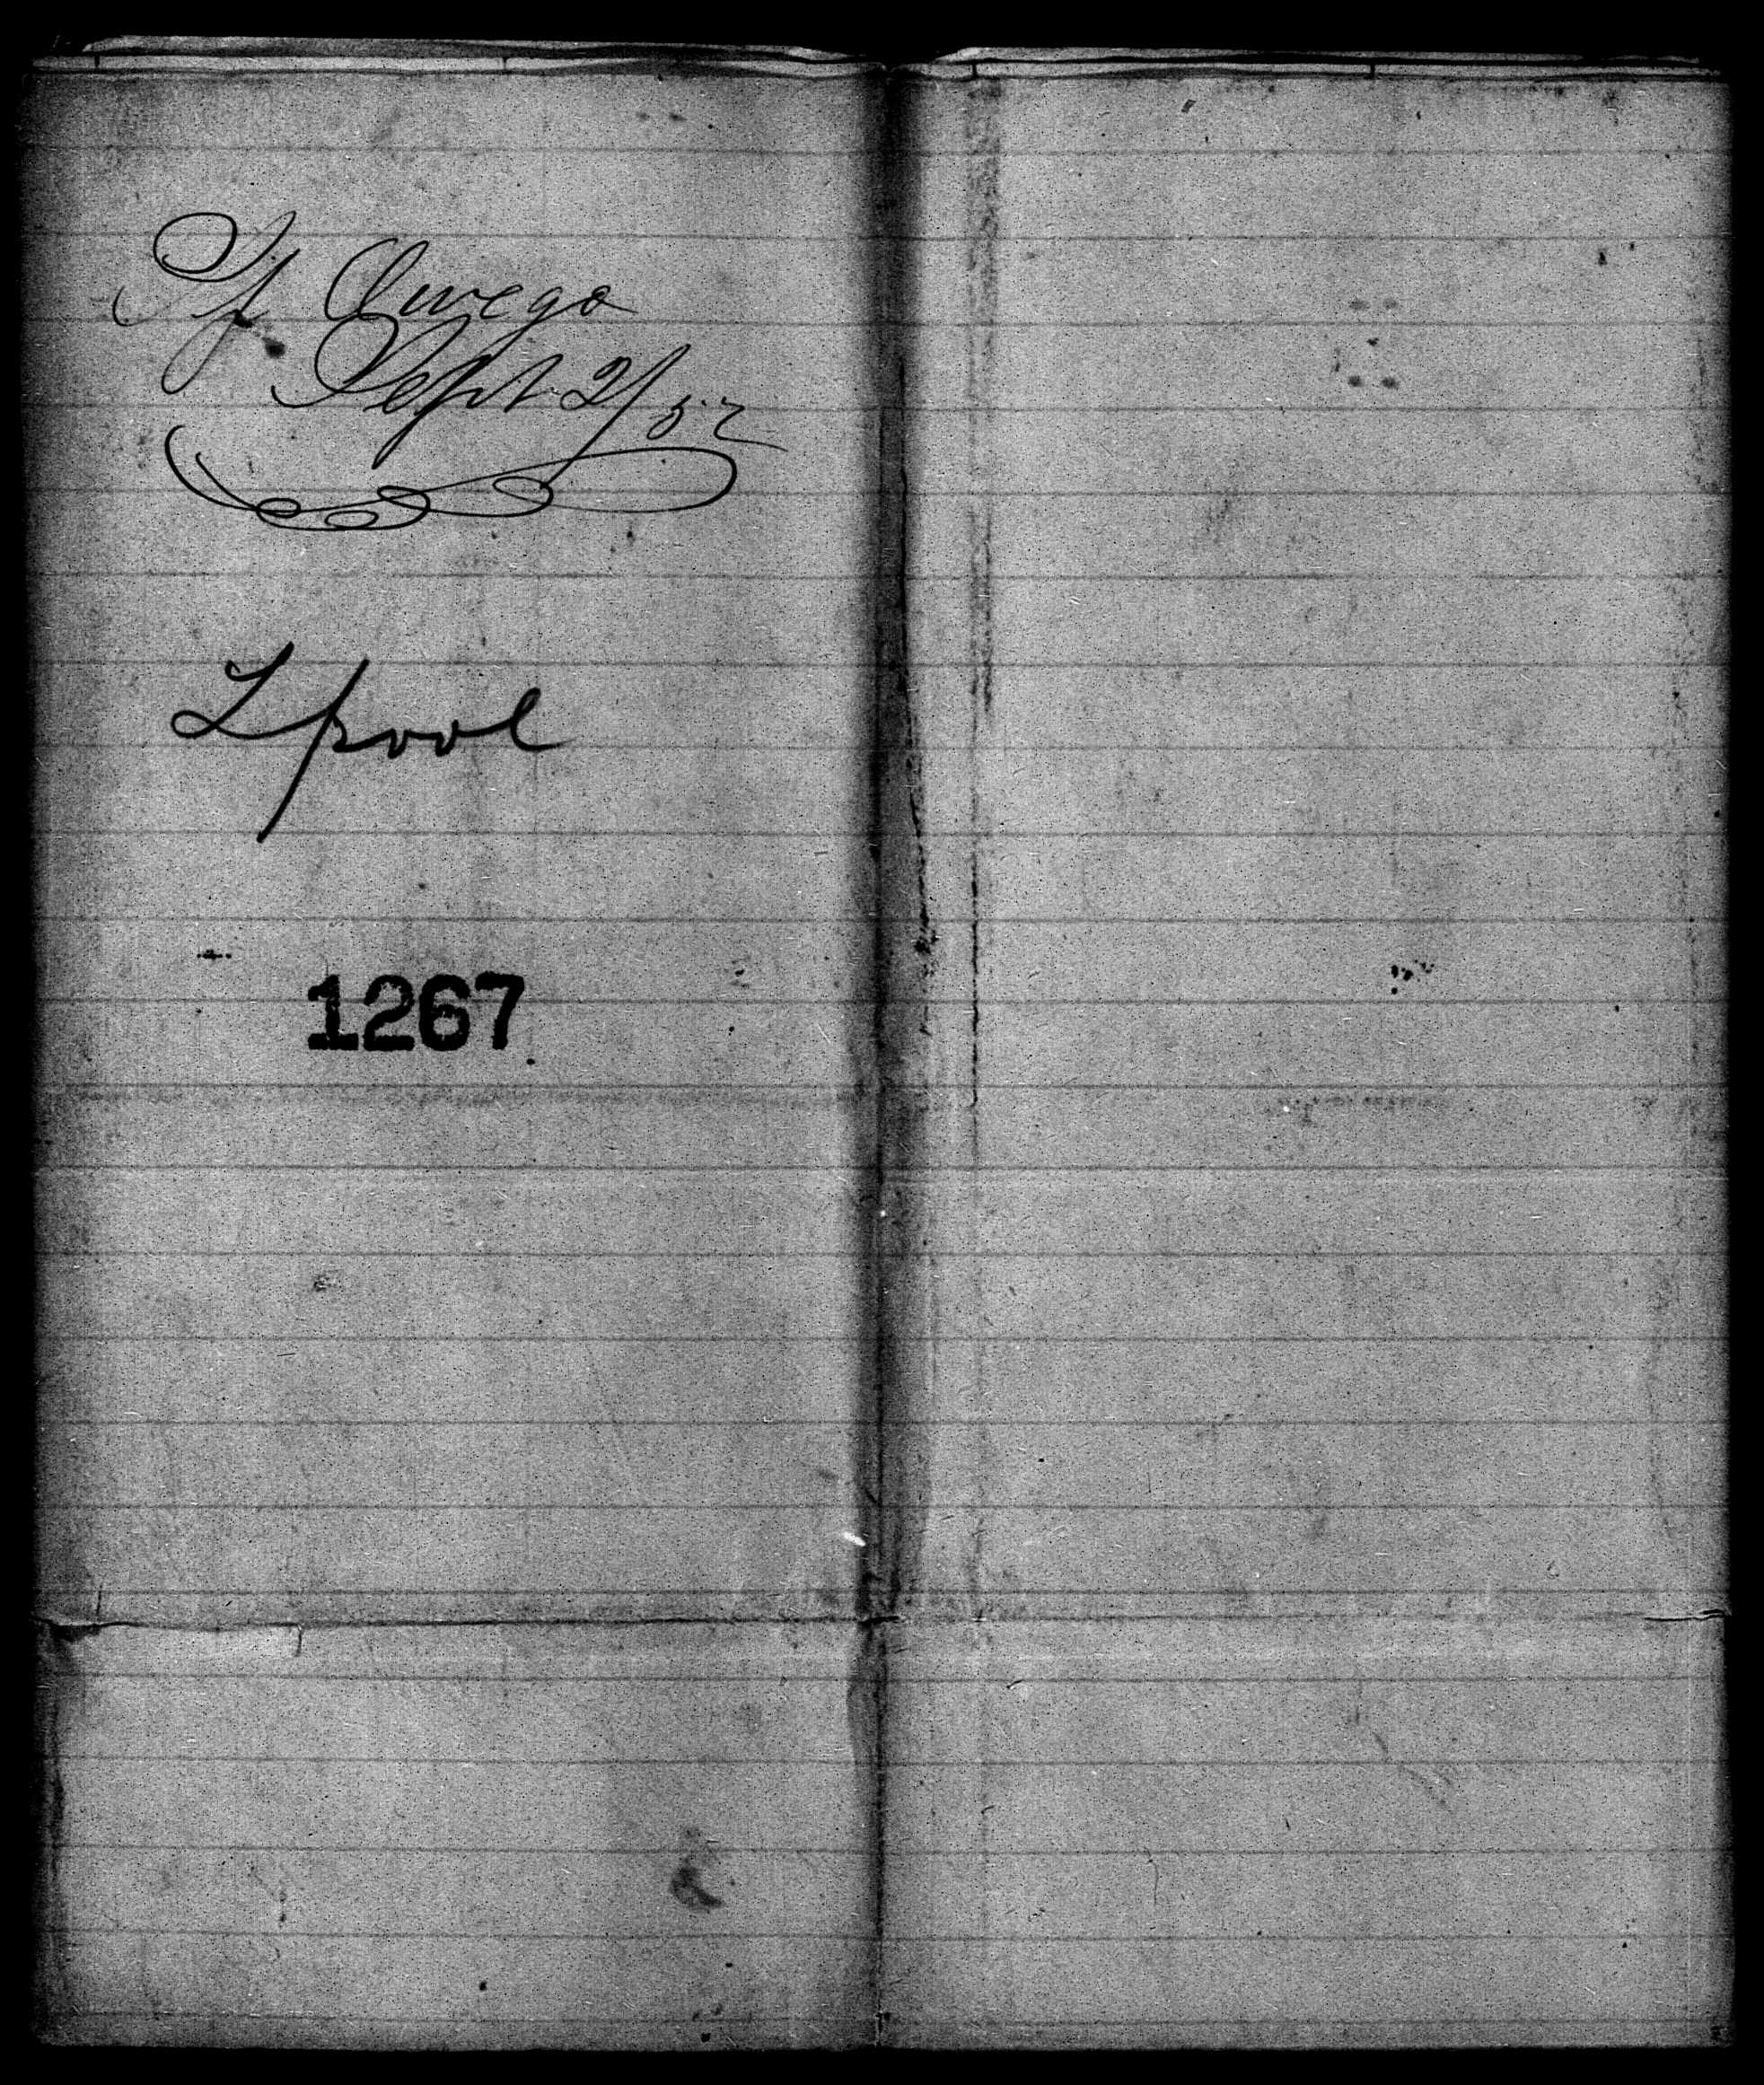 Sf Owego
Sept 2/52
Lpool
1267